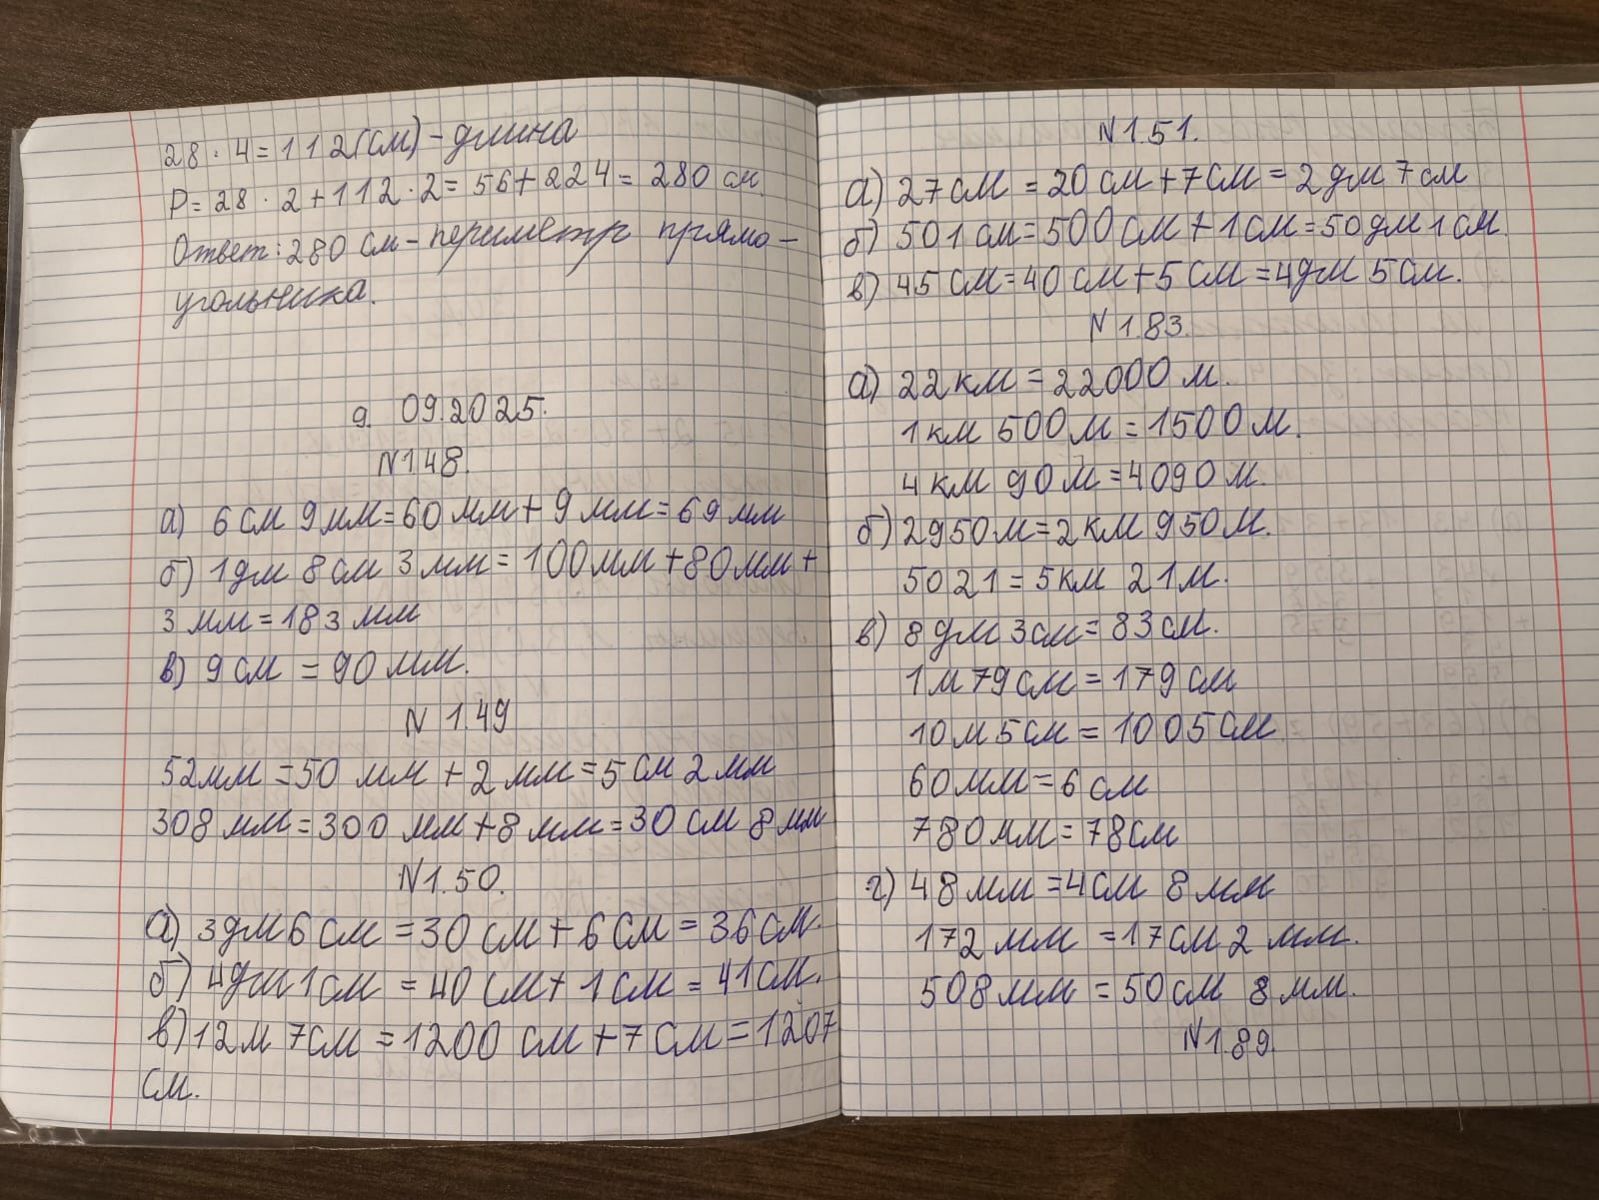 28 · 4 = 112 (см) - длина
P = 28 · 2 + 112 · 2 = 56 + 224 = 280 см.
Ответ: 280 см - периметр прямо-
угольника.
9. 09.2025.
N 1.48.
а) 6 см 9 мм = 60 мм + 9 мм = 69 мм
б) 1 дм 8 см 3 мм = 100 мм + 80 мм +
3 мм = 183 мм
в) 9 см = 90 мм.
N 1.49
52 мм = 50 мм + 2 мм = 5 см 2 мм
308 мм = 300 мм + 8 мм = 30 см 8 мм
N 1.50.
а) 3 дм 6 см = 30 см + 6 см = 36 см.
б) 4 дм 1 см = 40 см + 1 см = 41 см.
в) 12 м 7 см = 1200 см + 7 см = 1207
см.
N 1.51.
а) 27 см = 20 см + 7 см = 2 дм 7 см
б) 501 см = 500 см + 1 см = 50 дм 1 см.
в) 45 см = 40 см + 5 см = 4 дм 5 см.
N 1.83.
а) 22 км = 22000 м.
1 км 500 м = 1500 м.
4 км 90 м = 4090 м.
б) 2950 м = 2 км 950 м.
5021 = 5 км 21 м.
в) 8 дм 3 см = 83 см.
1 м 79 см = 179 см
10 м 5 см = 1005 см
60 мм = 6 см
780 мм = 78 см
г) 48 мм = 4 см 8 мм
172 мм = 17 см 2 мм.
508 мм = 50 см 8 мм.
N 1.89.